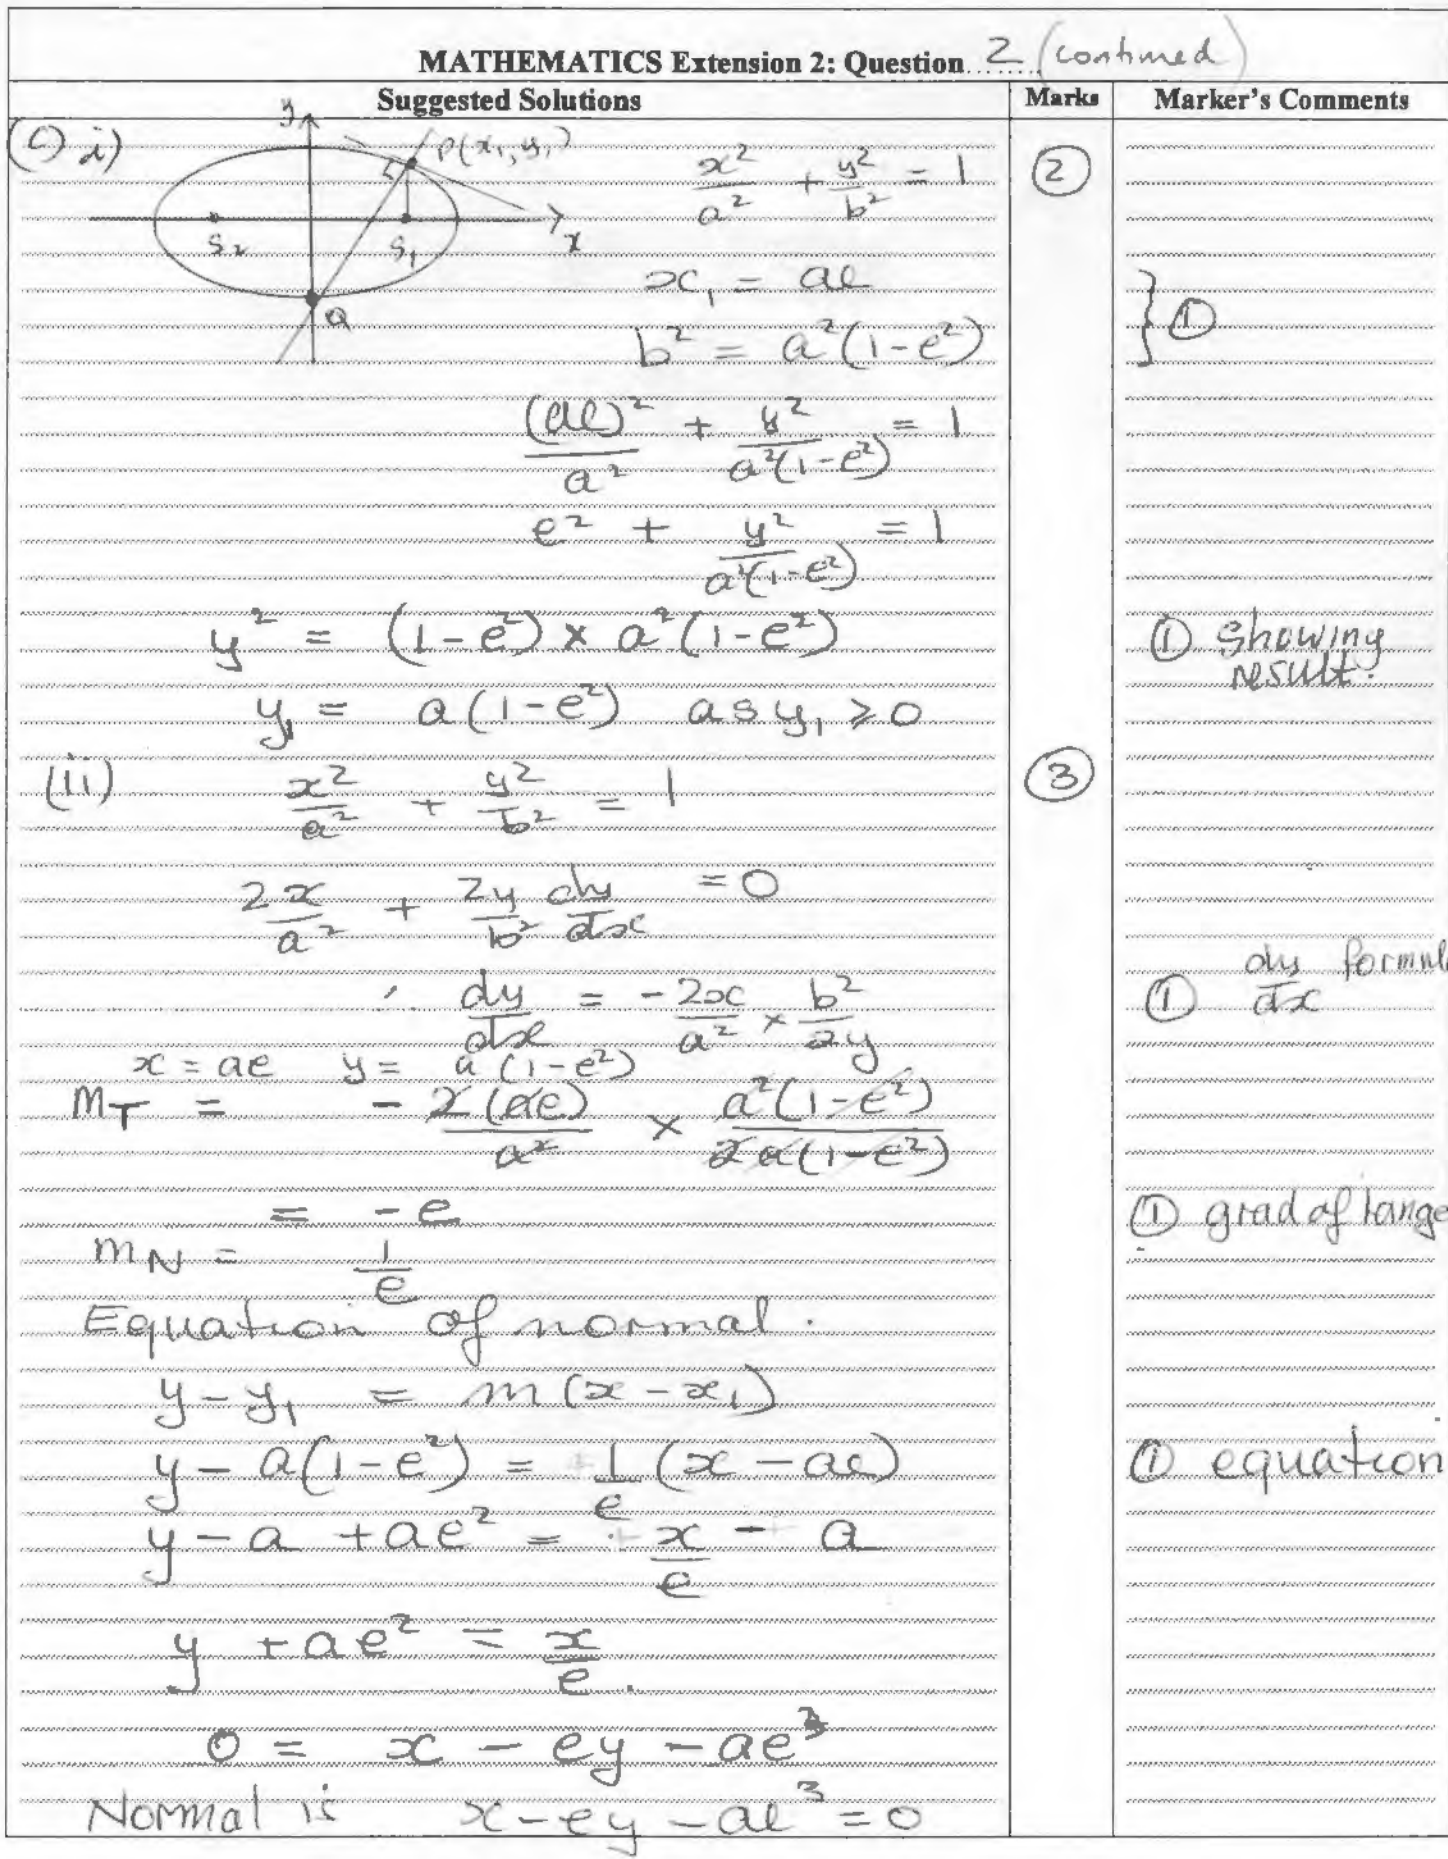 MATHEMATICS Extension 2: Question 2 (continued)
Suggested Solutions Marks Marker's Comments
(c) i)
y
P(x₁, y₁)
S₂ S₁ x
Q
x²/a² + y²/b² = 1 ②
x₁ = ae
b² = a²(1-e²) } ①
(ae)²/a² + y²/a²(1-e²) = 1
e² + y²/a²(1-e²) = 1
y² = (1-e²) × a²(1-e²) ① showing
result.
y₁ = a(1-e²) as y₁ ⩾ 0
(ii) x²/a² + y²/b² = 1 ③
2x/a² + 2y/b² dy/dx = 0
∴ dy/dx = -2x/a² × b²/2y ① dy/dx formula
x = ae y = a(1-e²)
m_T = - 2(ae)/a² × a²(1-e²)/2a(1-e²)
= -e ① grad of tange
m_N = 1/e
Equation of normal.
y - y₁ = m(x - x₁)
y - a(1-e²) = 1/e (x - ae) ① equation
y - a + ae² = x/e - a
y + ae² = x/e.
0 = x - ey - ae³
Normal is x - ey - ae³ = 0